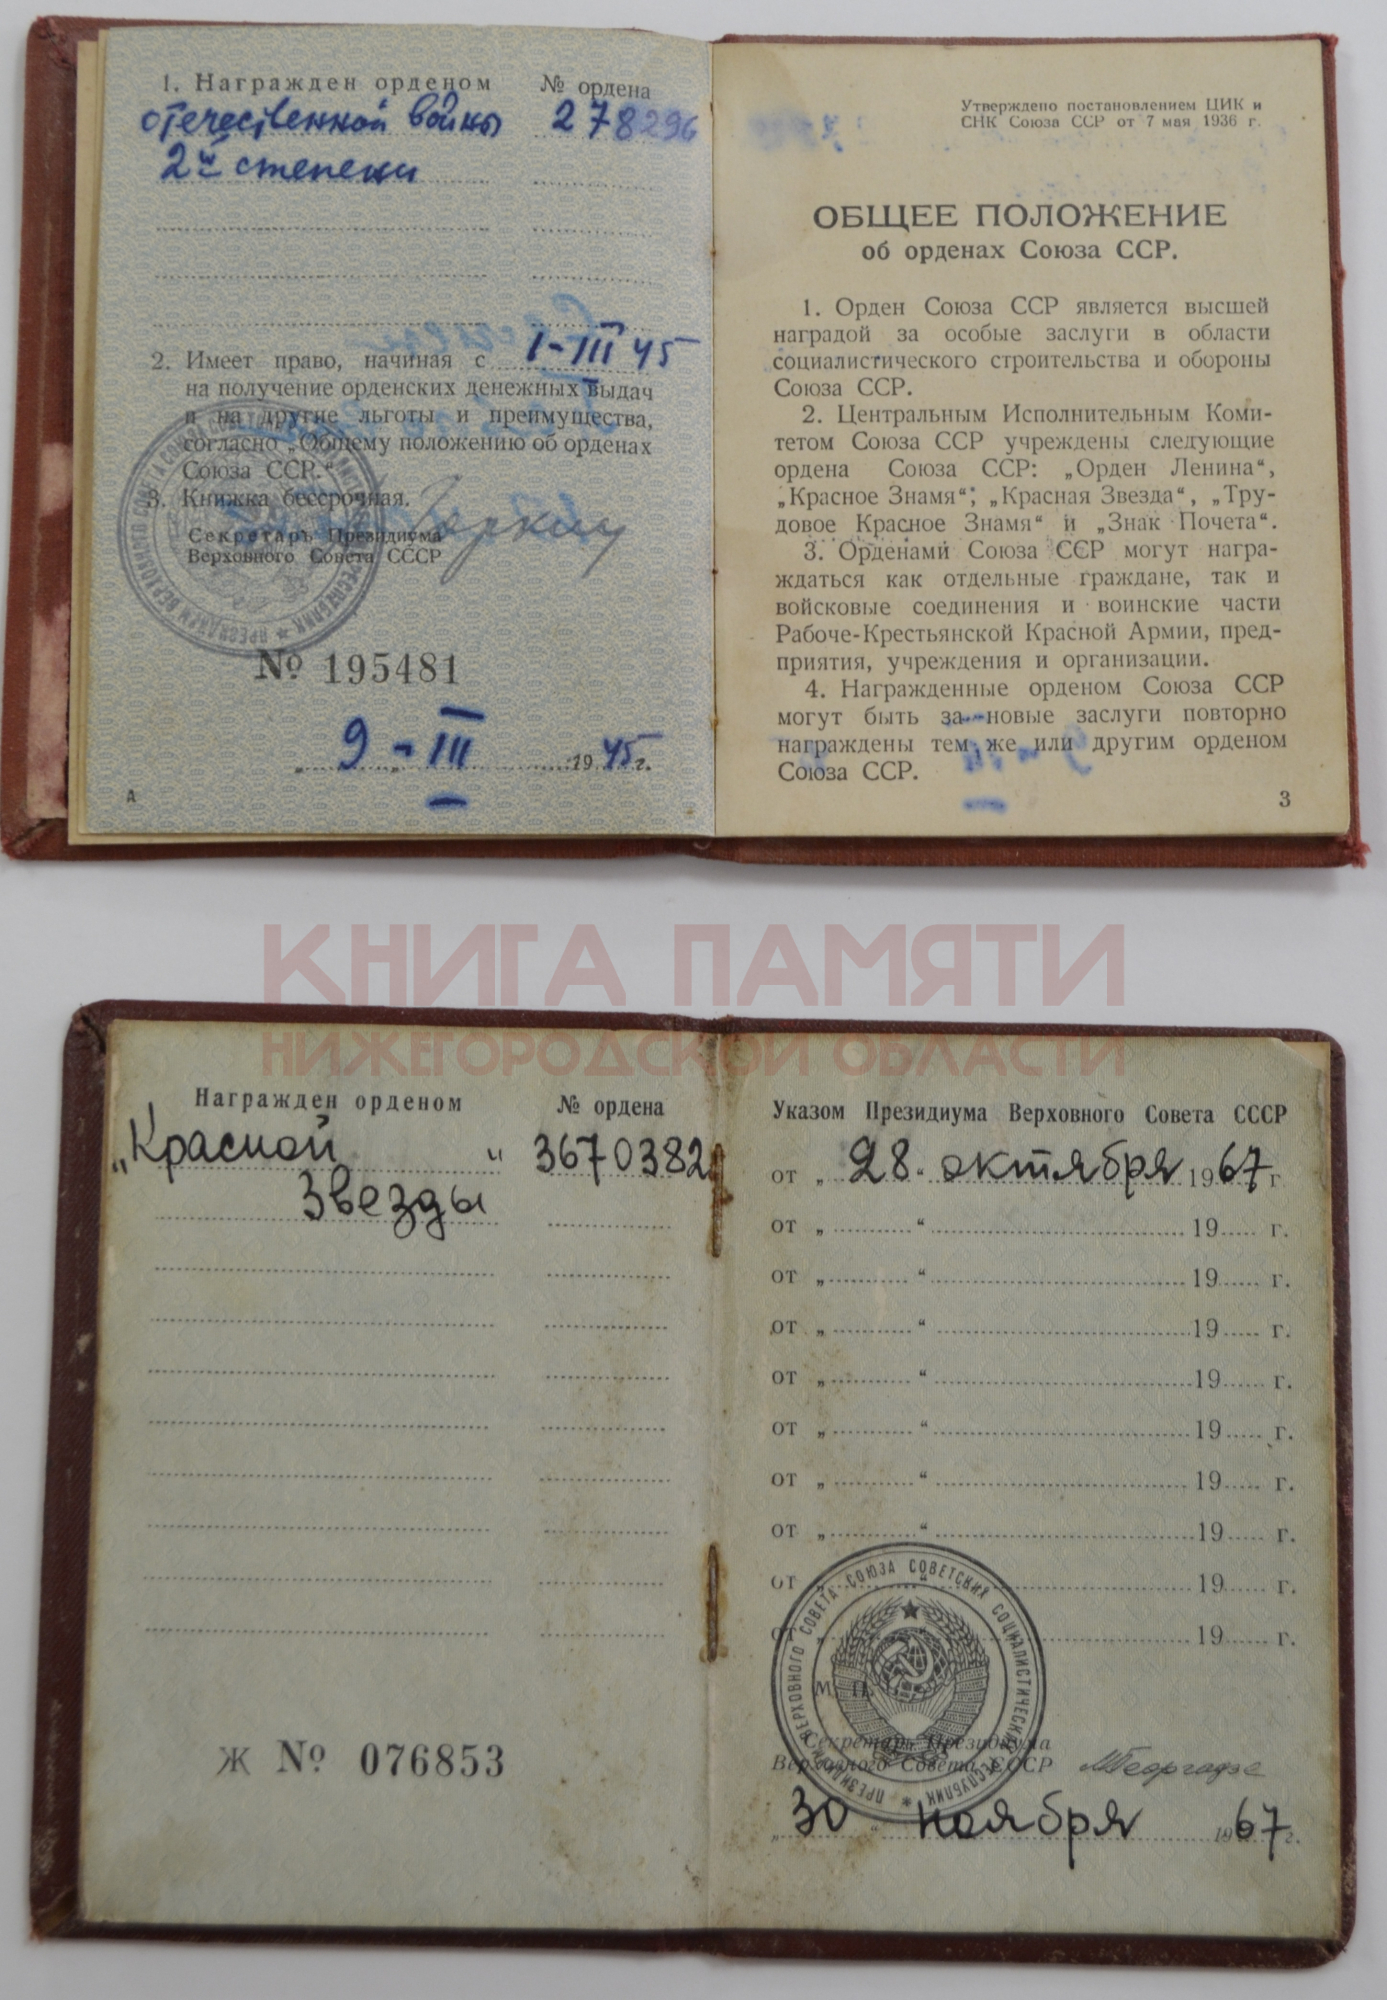 1. Награжден орденом
№ ордена
отечественной войны
278296
2й степени
2. Имеет право, начиная с I-III 45
на получение орденских денежных выдач
и на другие льготы и преимущества,
согласно „Общему положению об орденах
Союза ССР."
3. Книжка бессрочная.
Секретарь Президиума
Верховного Совета СССР
Горкин
№ 195481
„ 9 „ III 1945 г.
А
Утверждено постановлением ЦИК и
СНК Союза ССР от 7 мая 1936 г.
ОБЩЕЕ ПОЛОЖЕНИЕ
об орденах Союза ССР.
1. Орден Союза ССР является высшей
наградой за особые заслуги в области
социалистического строительства и обороны
Союза ССР.
2. Центральным Исполнительным Коми-
тетом Союза ССР учреждены следующие
ордена Союза ССР: „Орден Ленина“,
„Красное Знамя“; „Красная Звезда“, „Тру-
довое Красное Знамя“ и „Знак Почета“.
3. Орденами Союза ССР могут награ-
ждаться как отдельные граждане, так и
войсковые соединения и воинские части
Рабоче-Крестьянской Красной Армии, пред-
приятия, учреждения и организации.
4. Награжденные орденом Союза ССР
могут быть за новые заслуги повторно
награждены тем же или другим орденом
Союза ССР.
3
КНИГА ПАМЯТИ
НИЖЕГОРОДСКОЙ ОБЛАСТИ
Награжден орденом
№ ордена
„Красной "
3670382
Звезды
Ж № 076853
Указом Президиума Верховного Совета СССР
от „ 28 “ октября 1967 г.
от „ “ 19 г.
от „ “ 19 г.
от „ “ 19 г.
от „ “ 19 г.
от „ “ 19 г.
от „ “ 19 г.
от „ “ 19 г.
от „ “ 19 г.
от „ “ 19 г.
ПРЕЗИДИУМ ВЕРХОВНОГО СОВЕТА СОЮЗА СОВЕТСКИХ СОЦИАЛИСТИЧЕСКИХ РЕСПУБЛИК
М. П.
Секретарь Президиума
Верховного Совета СССР
МГеоргадзе
„ 30 “ ноября 1967 г.